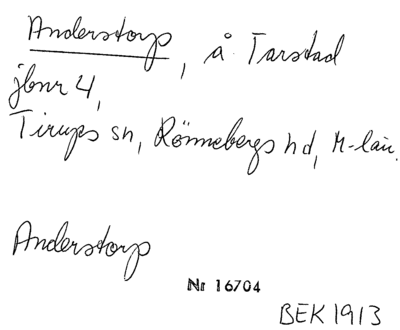 Anderstorp, å Tarstad
jbnr 4,
Tirups sn, Rönnebergs hd, M-län.
Anderstorp
Nr 16704
BEK 1913